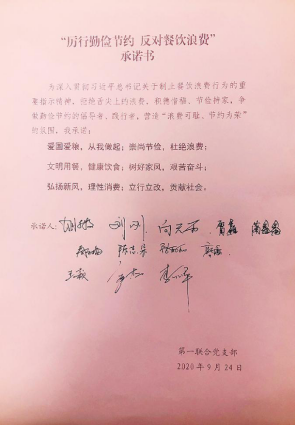 “厉行勤俭节约 反对餐饮浪费”
承诺书
为深入贯彻习近平总书记关于制止餐饮浪费行为的重
要指示精神，拒绝舌尖上的浪费，积德惜福、节俭持家，争
做勤俭节约的倡导者、践行者，营造“浪费可耻、节约为荣”
的氛围，我承诺：
爱国爱粮，从我做起；崇尚节俭，杜绝浪费；
文明用餐，健康饮食；树好家风，艰苦奋斗；
弘扬新风，理性消费；立行立改，贡献社会。
承诺人： 刘刚
第一联合党支部
2020年9月24日